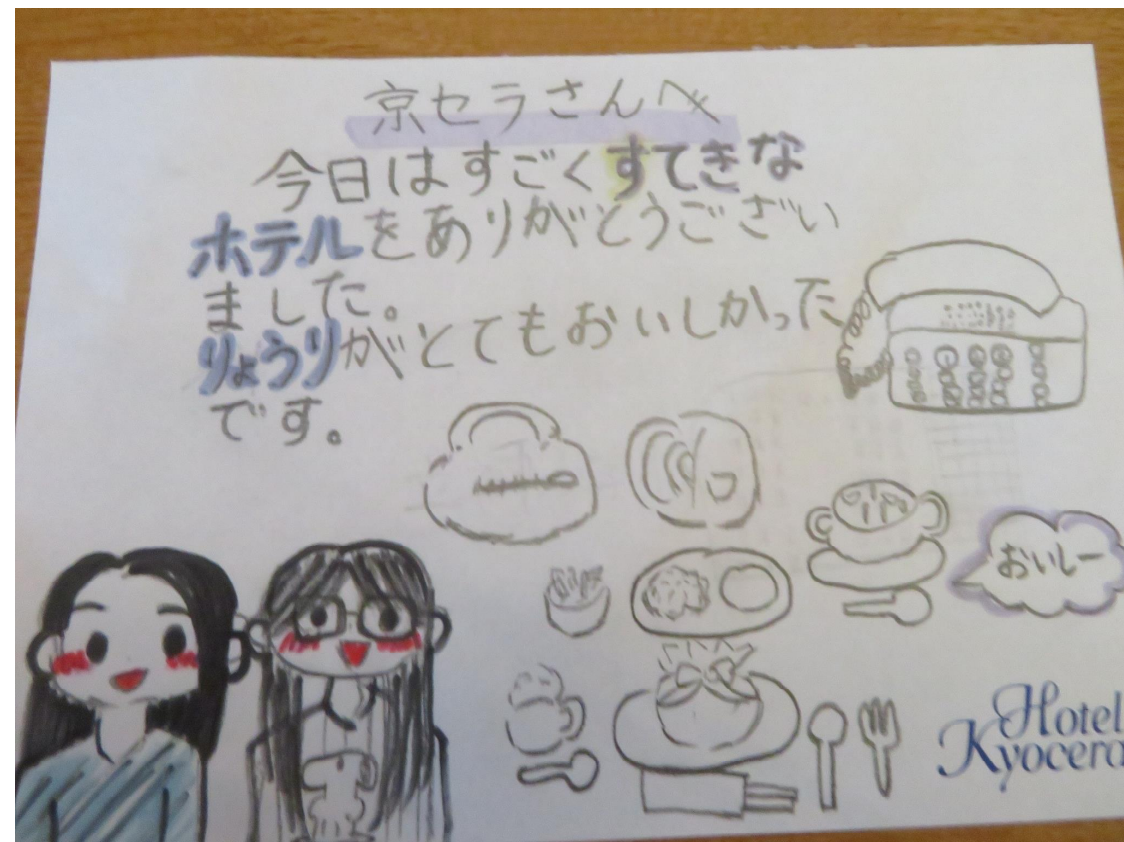 京セラさんへ
今日はすごくすてきな
ホテルをありがとうござい
ました。
りょうりがとてもおいしかった
です。
おいしー
Hotel
Kyocera